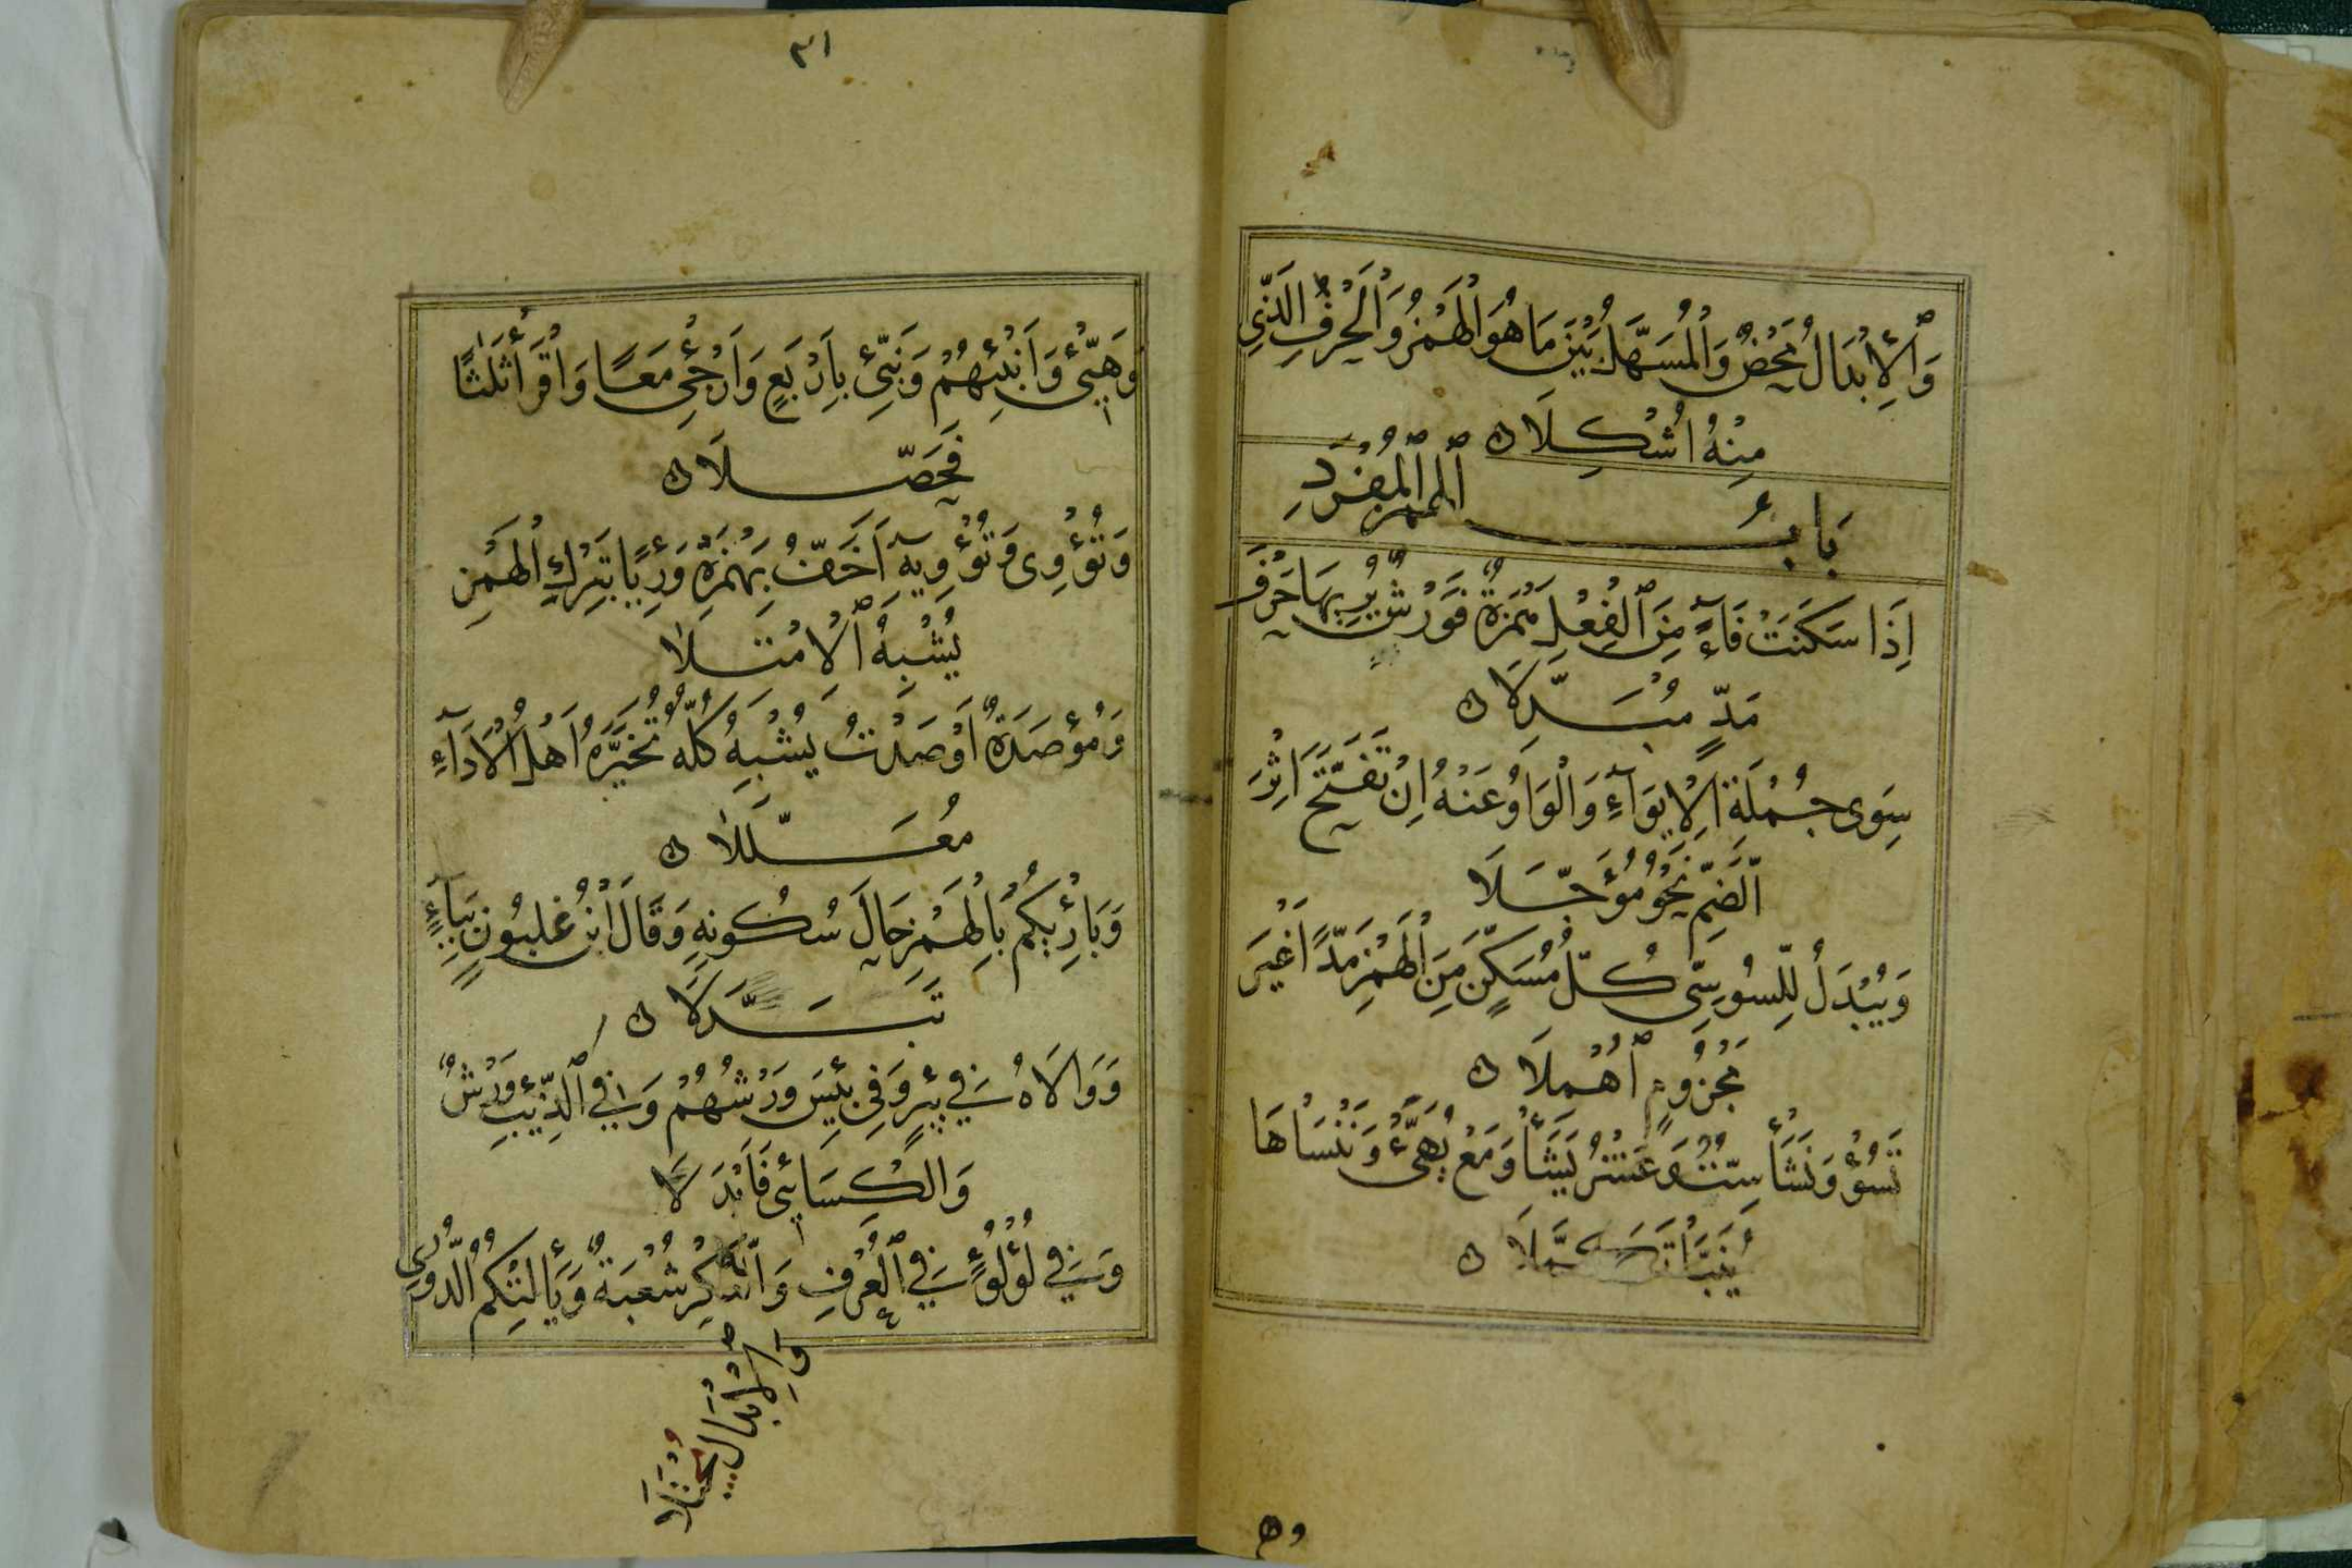 وَٱلْإِبْدَالُ مَحْضٌ وَٱلْمُسَهَّلُ بَيْنَ مَا هُوَ الْهَمْزُ وَٱلْحَرْفِ الَّذِي
مِنْهُ اُشْكِلَا ن
بَابُ ٱلْهَمْزِ ٱلْمُفْرَدِ
اِذَا سَكَنَتْ فَاءً مِنَ ٱلْفِعْلِ هَمْزَةٌ فَوَرْشٌ يُرِيهَا حَرْفَ
مَدٍّ مُبَدِّلَا ن
سِوَى جُمْلَةِ الْإِيوَآءِ وَالْوَاوُ عَنْهُ اِنْ تَفَتَّحَ اِثْرَ
الضَّمِّ نَحْوُ مُؤَجَّلَا
وَيُبْدَلُ لِلسُّوسِيِّ كُلُّ مُسَكَّنٍ مِنَ الْهَمْزِ مَدًّا غَيْرَ
مَجْزُومٍ ٱهْمِلَا ن
تَسُؤْ وَنَشَأْ سِتٌّ وَعَشْرُ يَشَأْ وَمَعْ يُهَيِّئْ وَنَنْسَأْهَا
يُنَبَّأْ تَكَمَّلَا ن
وه
٣١
وَهَيِّئْ وَاَنْبِئْهُمْ وَنَبِّئْ بِاَرْبَعٍ وَاَرْجِئْ مَعًا وَاقْرَأْ ثَلٰثًا
فَحَصِّلَا ن
وَتُؤْوِى وَتُؤْوِيهِ اَخَفُّ بِهَمْزَةٍ وَرِءْيًا بِتَرْكِ الْهَمْزِ
يُشْبِهُ ٱلْاِمْتِلَا
وَمُؤْصَدَةٌ اَوْصَدْتُ يُشْبِهُ كُلُّهُ تَخَيَّرَهُ اَهْلُ الْاَدَآءِ
مُعَلَّلَا ن
وَبَارِئِكُمْ بِالْهَمْزِ حَالَ سُكُونِهِ وَقَالَ ابْنُ غَلْبُونٍ بِيَآءٍ
تَبَدَّلَا ن
وَوَالَاهُ فِي بِئْرٍ وَفِي بِئْسَ وَرْشُهُمْ وَفِي ٱلذِّئْبِ وَرْشٌ
وَالْكِسَائِي فَاَبْدَلَا
وَفِي لُؤْلُؤٍ فِي ٱلْعُرْفِ وَالنُّكْرِ شُعْبَةٌ وَيَأْلِتْكُمُ الدُّورِي
وَٱلْاِبْدَالُ يُجْتَلَا